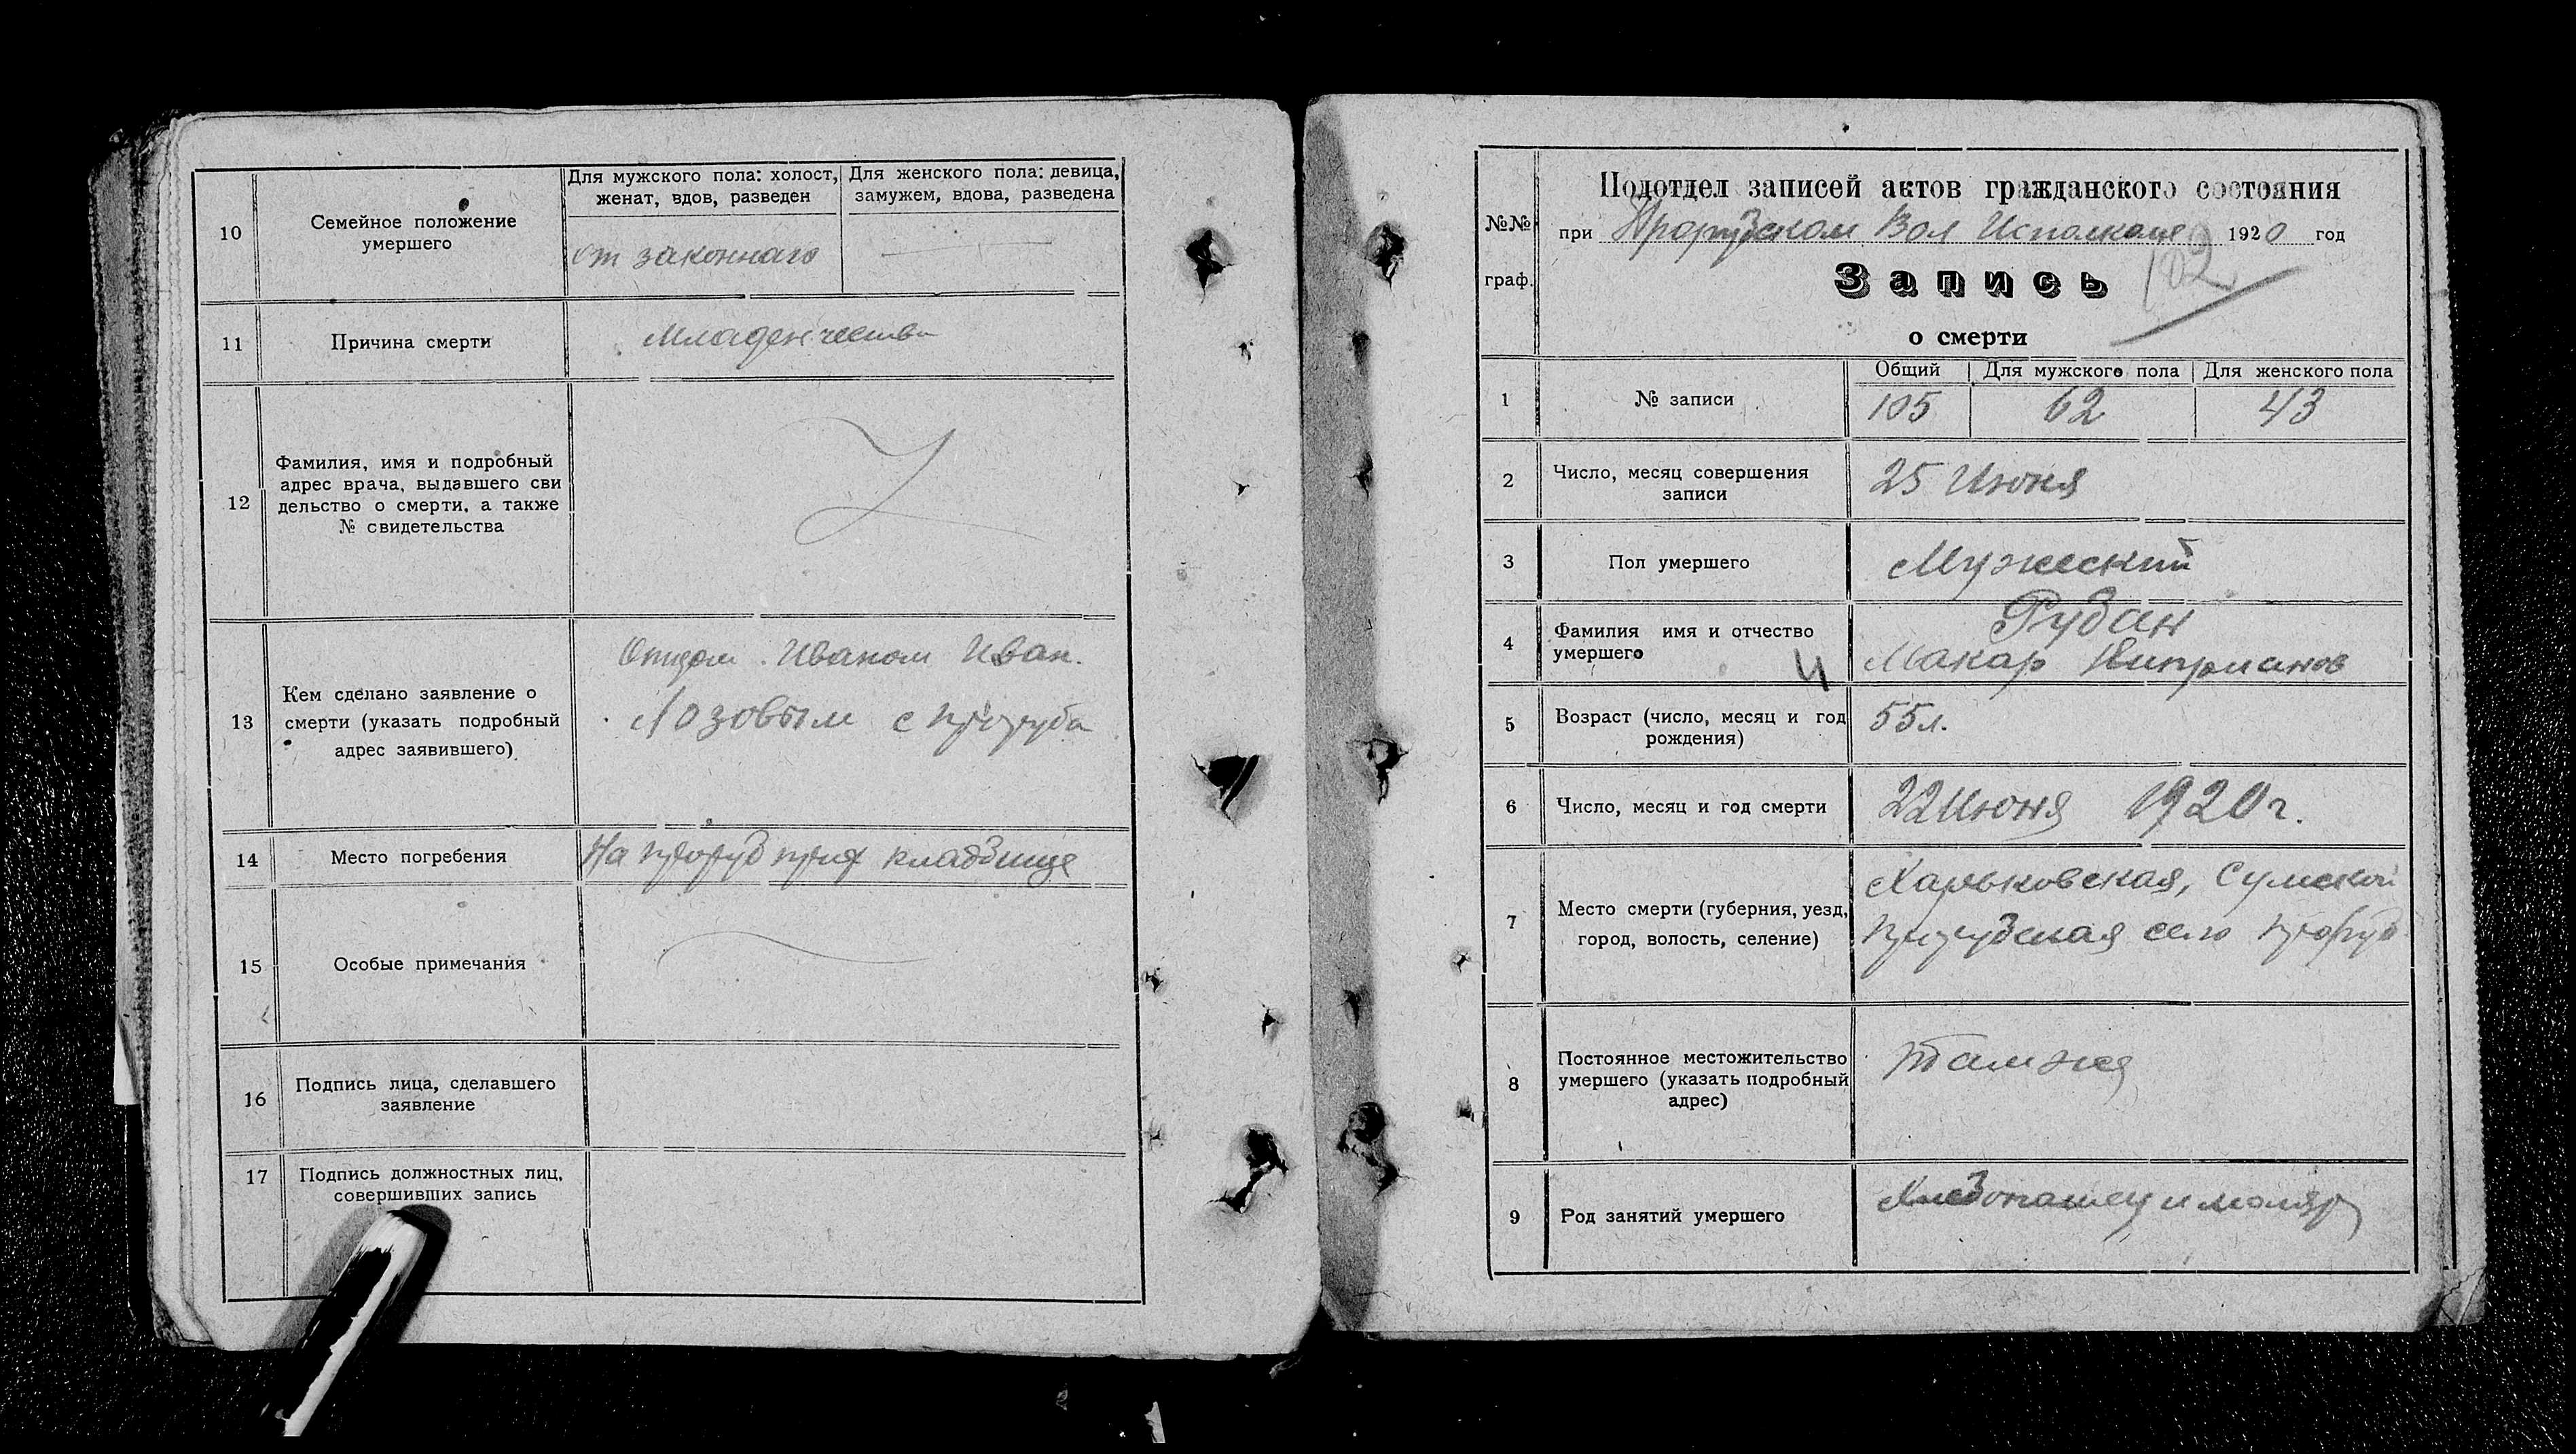 10
Семейное положение
умершего
Для мужского пола: холост,
женат, вдов, разведен
Для женского пола: девица,
замужем, вдова, разведена
от законнаго
11
Причина смерти
Младенчества
12
Фамилия, имя и подробный
адрес врача, выдавшего сви
дельство о смерти, а также
№ свидетельства
13
Кем сделано заявление о
смерти (указать подробный
адрес заявившего)
Отцом Иваном Иван.
Лозовым с Проруба
14
Место погребения
На Проруб прих кладбище
15
Особые примечания
16
Подпись лица, сделавшего
заявление
17
Подпись должностных лиц,
совершивших запись
№№
граф.
Подотдел записей актов гражданского состояния
при Прорубском Вол Исполкоме 1920 год
102
Запись
о смерти
1
№ записи
Общий
Для мужского пола
Для женского пола
105
62
43
2
Число, месяц совершения
записи
25 Июня
3
Пол умершего
Мужеский
4
Фамилия имя и отчество
умершего
Рубан
Макар
5
Возраст (число, месяц и год
рождения)
55л.
6
Число, месяц и год смерти
22 Июня 1920г.
7
Место смерти (губерния, уезд,
город, волость, селение)
Харьковская, Сумской
Прорубская село Проруб
8
Постоянное местожительство
умершего (указать подробный
адрес)
Там же
9
Род занятий умершего
Хлебопашец и маляр